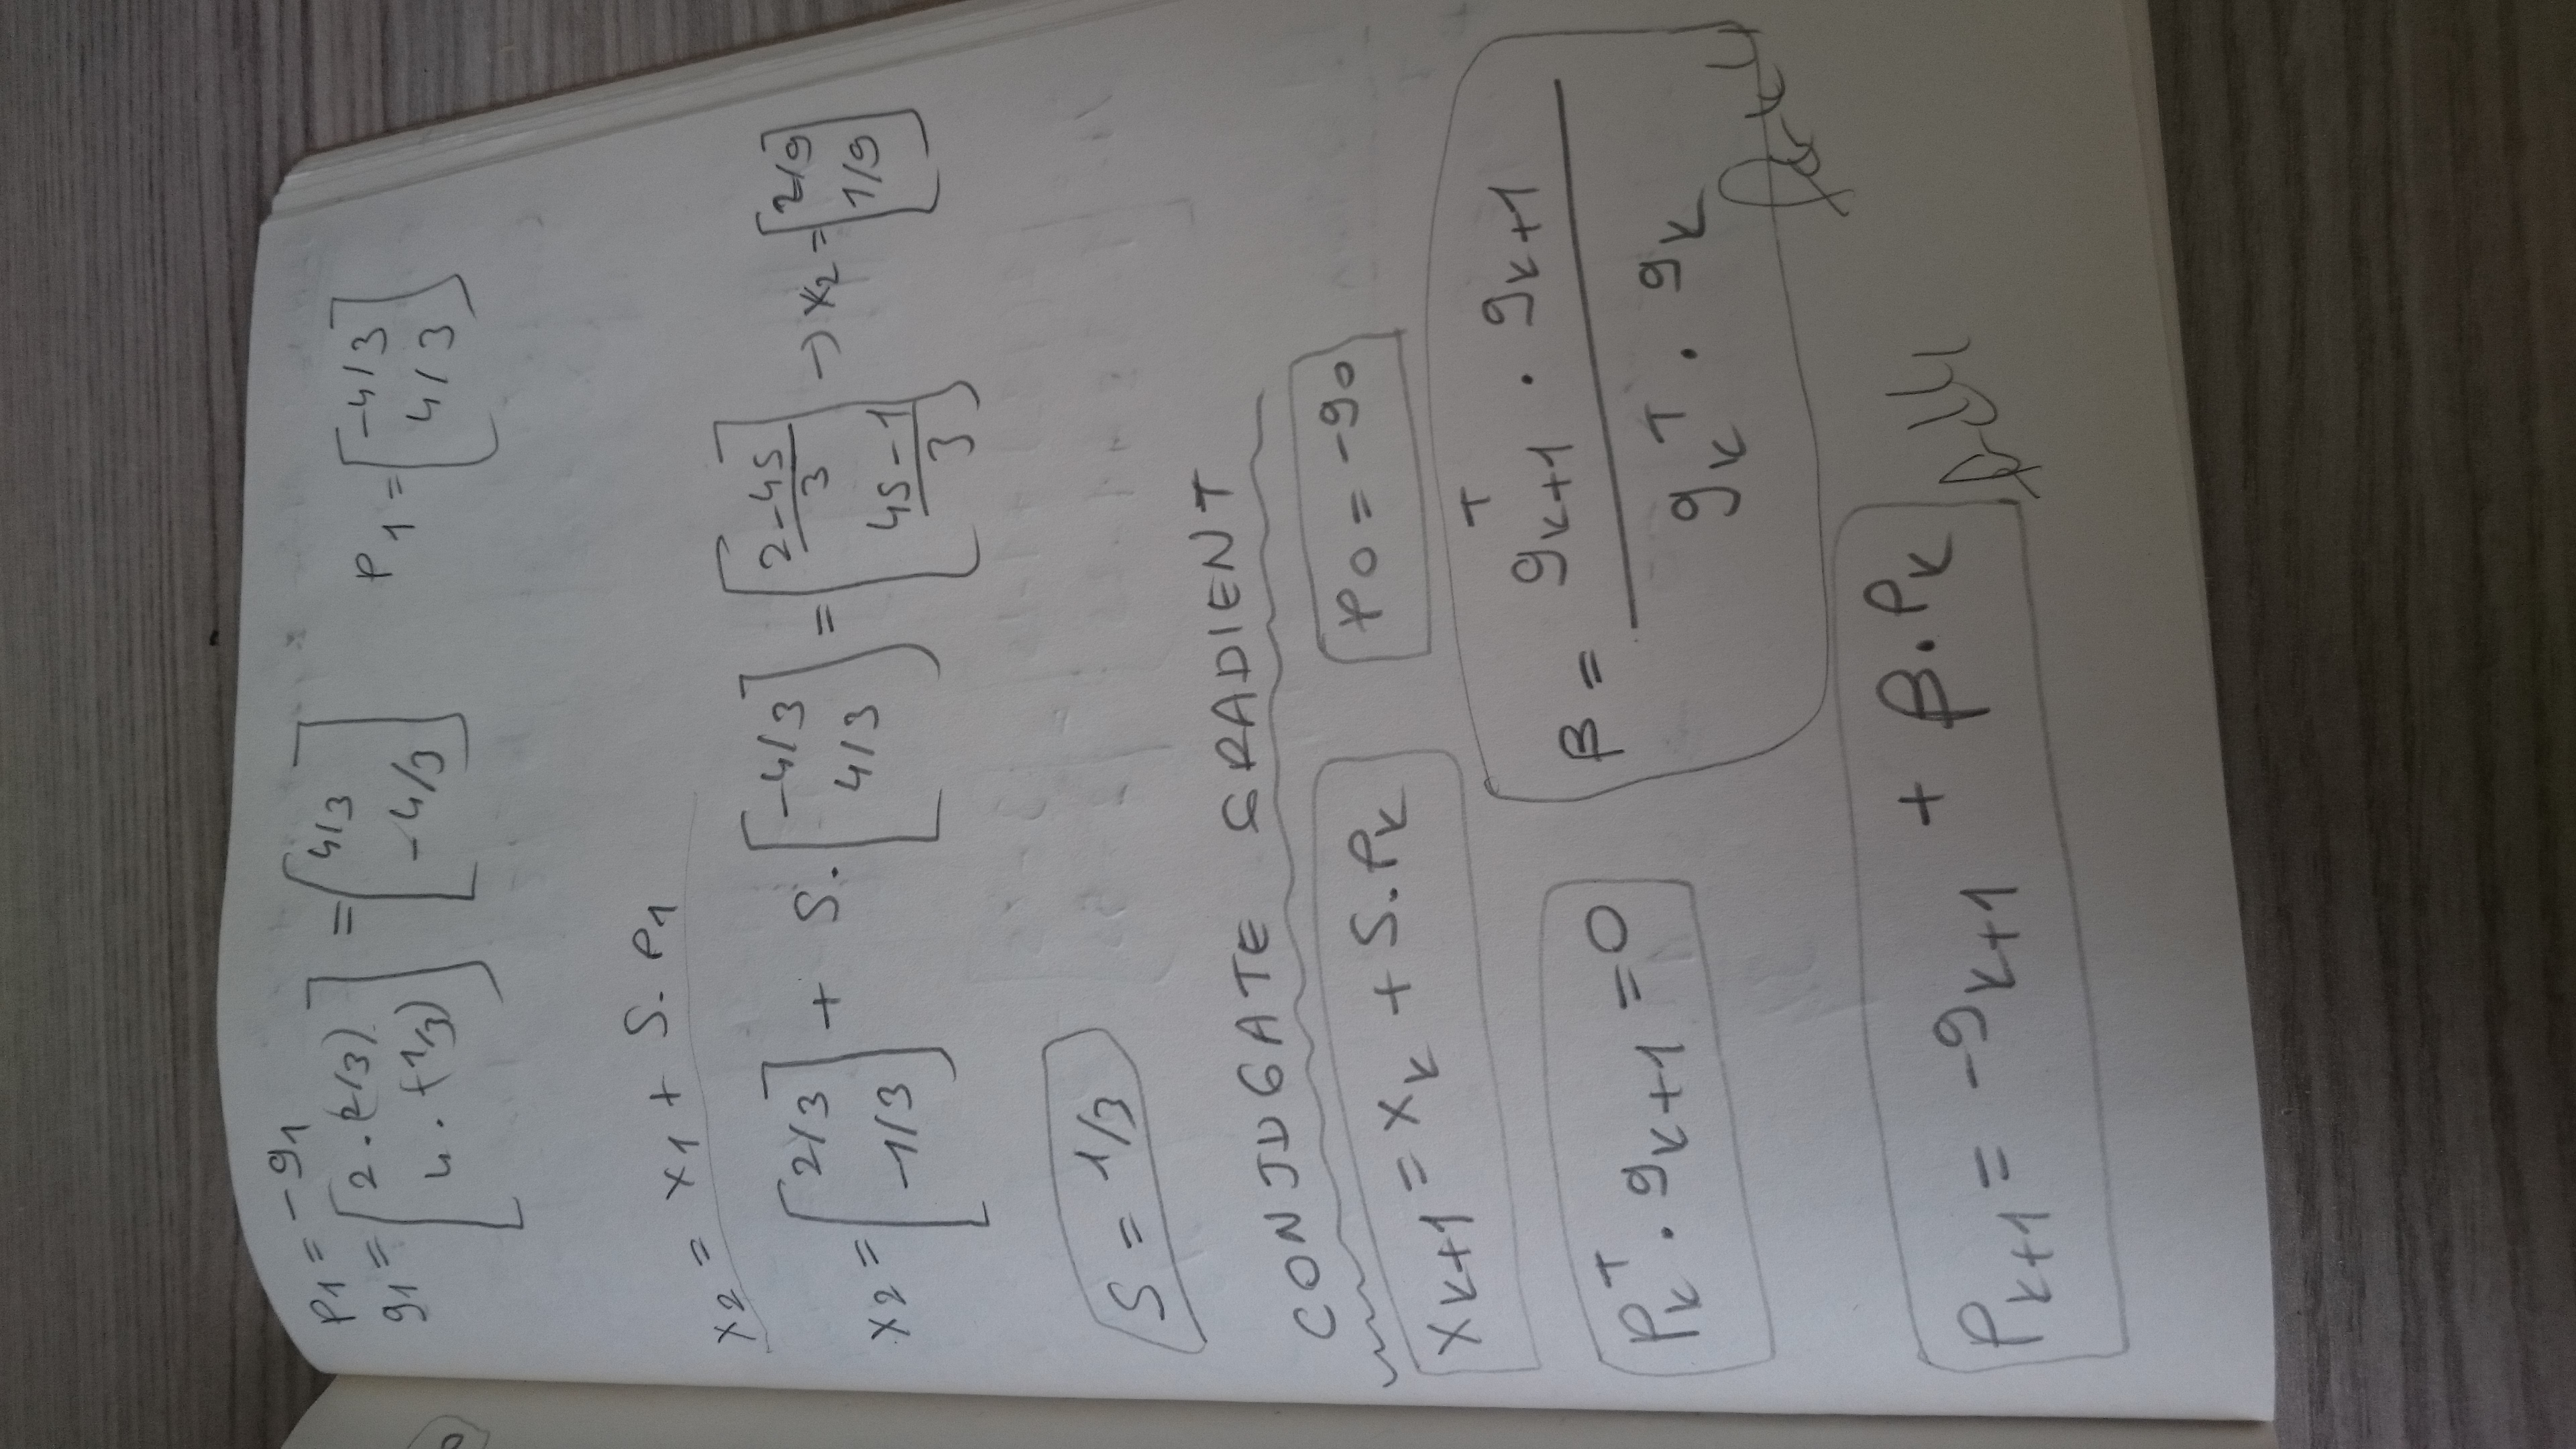 P1 = -g1
g1 = [2.(2/3) 4.(-1/3)] = [4/3 -4/3] P1 = [-4/3 4/3]
x2 = x1 + S. P1
x2 = [2/3 -1/3] + S. [-4/3 4/3] = [2-4S/3 4S-1/3] → x2 = [2/9 1/9]
S = 1/3
CONJUGATE GRADIENT
xk+1 = xk + S.Pk P0 = -g0
Pk^T . gk+1 = 0 β = gk+1^T . gk+1 / gk^T . gk
farklı
Pk+1 = -gk+1 + β.Pk farklı